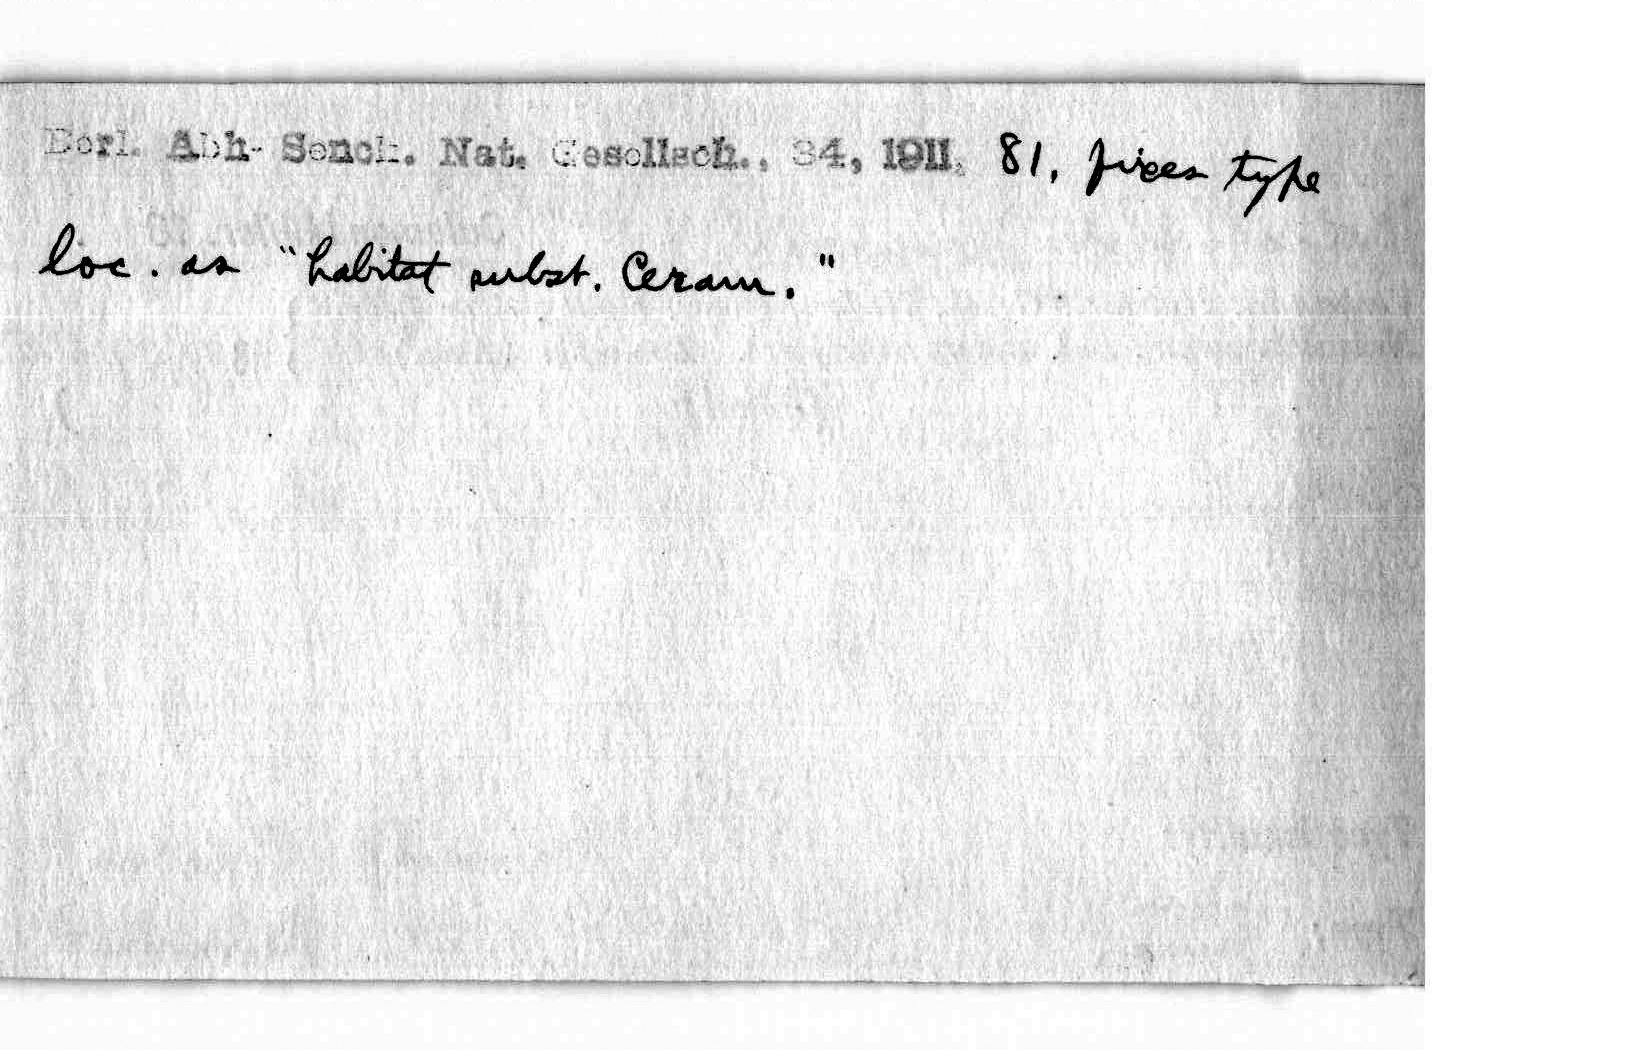 Berl. Abh. Senck. Nat. Gesellsch., 34, 1911, 81, fixes type
loc. as "habitat subst. Ceram."